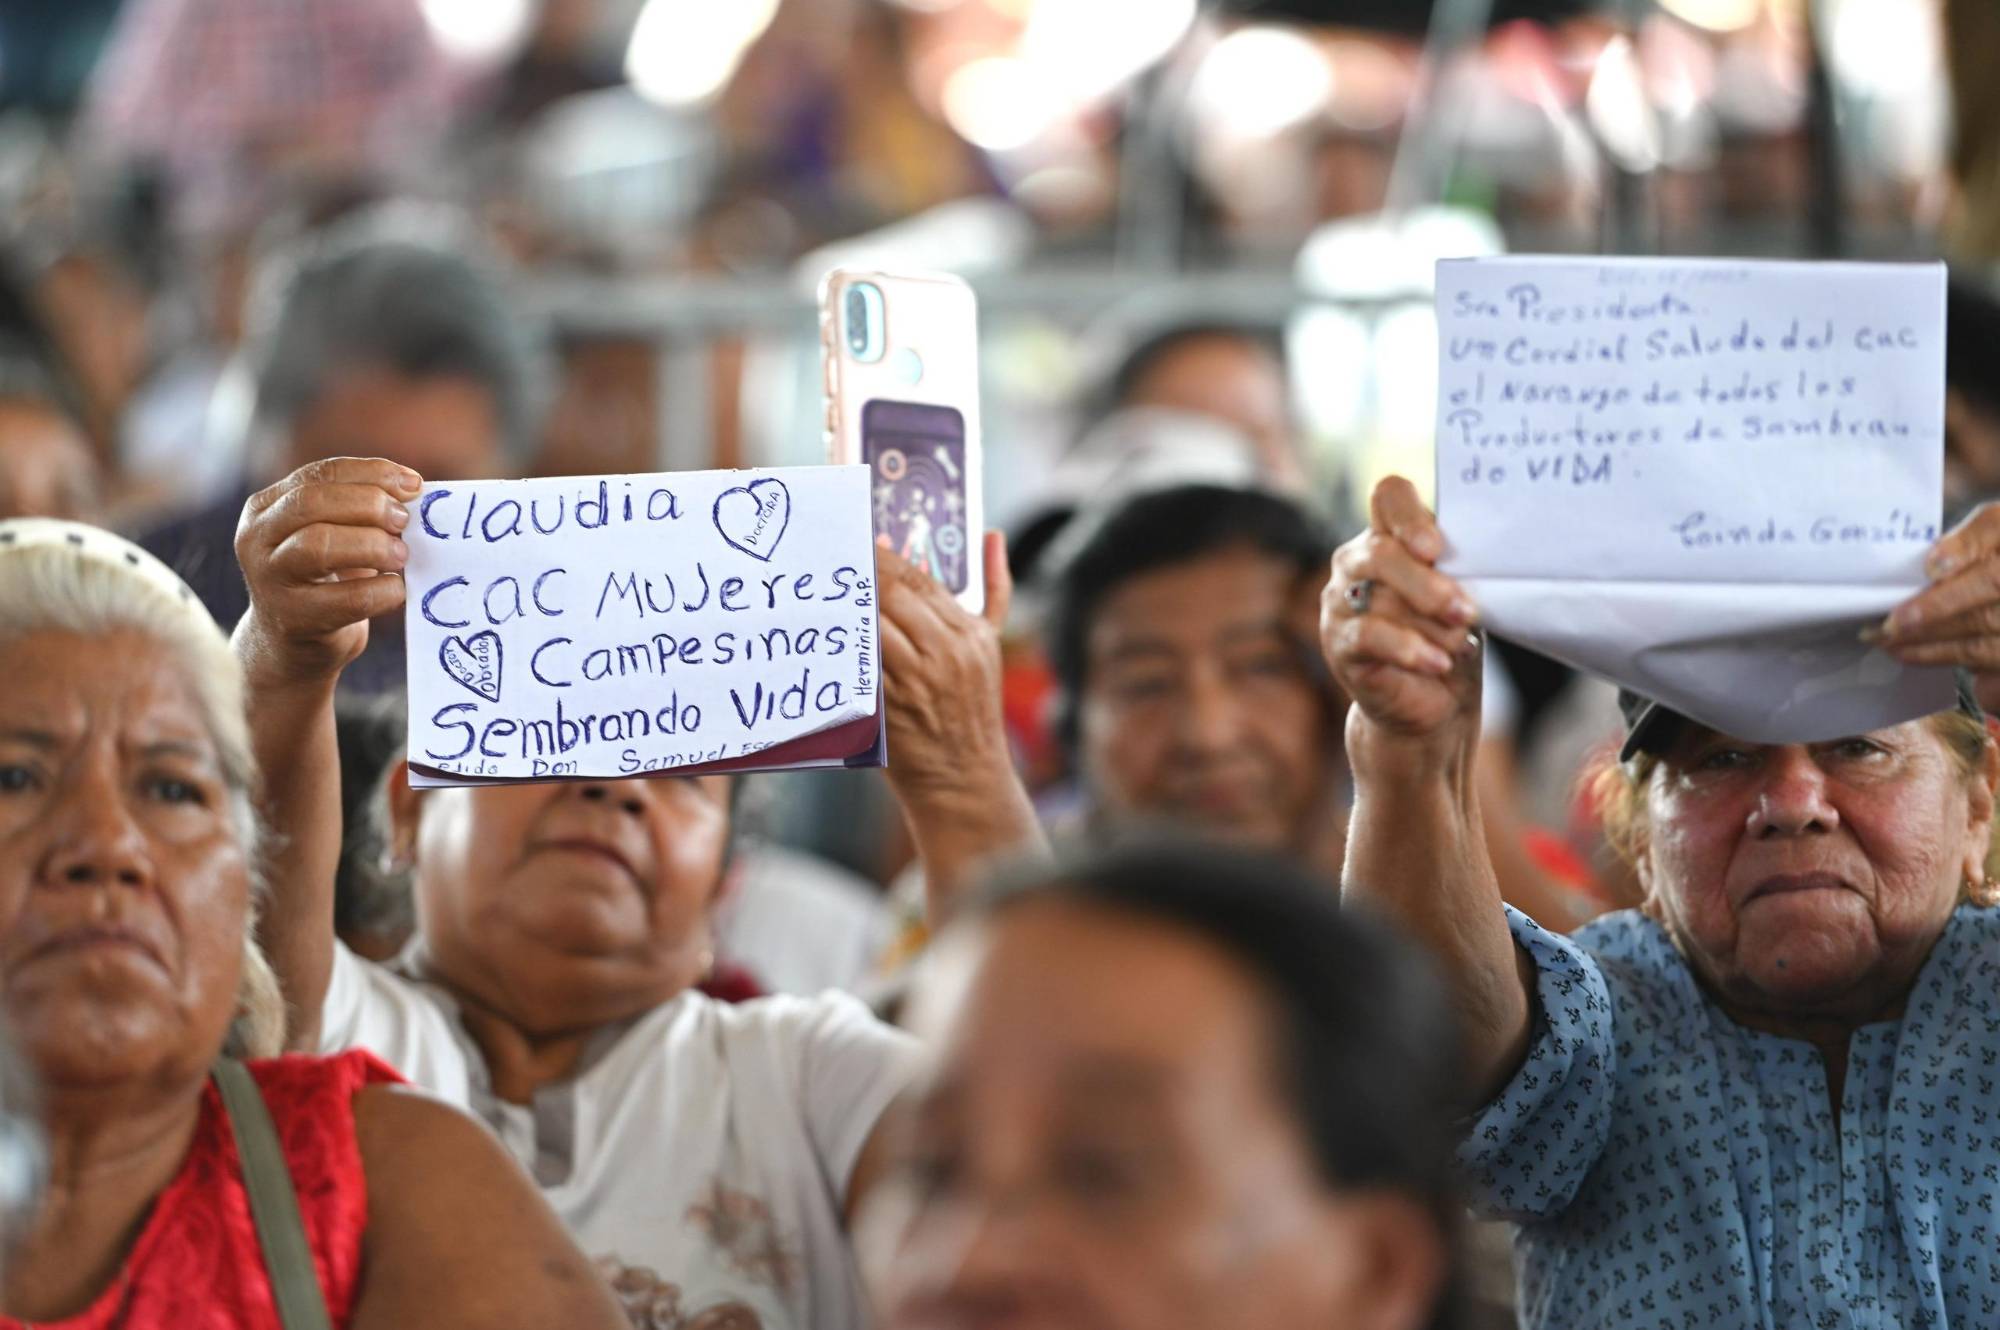 Claudia
DOCTORA
CAC MUJeres
Doctor
Obrador
Campesinas
Sembrando Vida
Ejido Don Samuel Esc
Herminia R.P.
Sra Presidenta.
Un Cordial Saludo del Cac
el Naranjo de todos los
Productores de Sembran-
do VIDA.
González